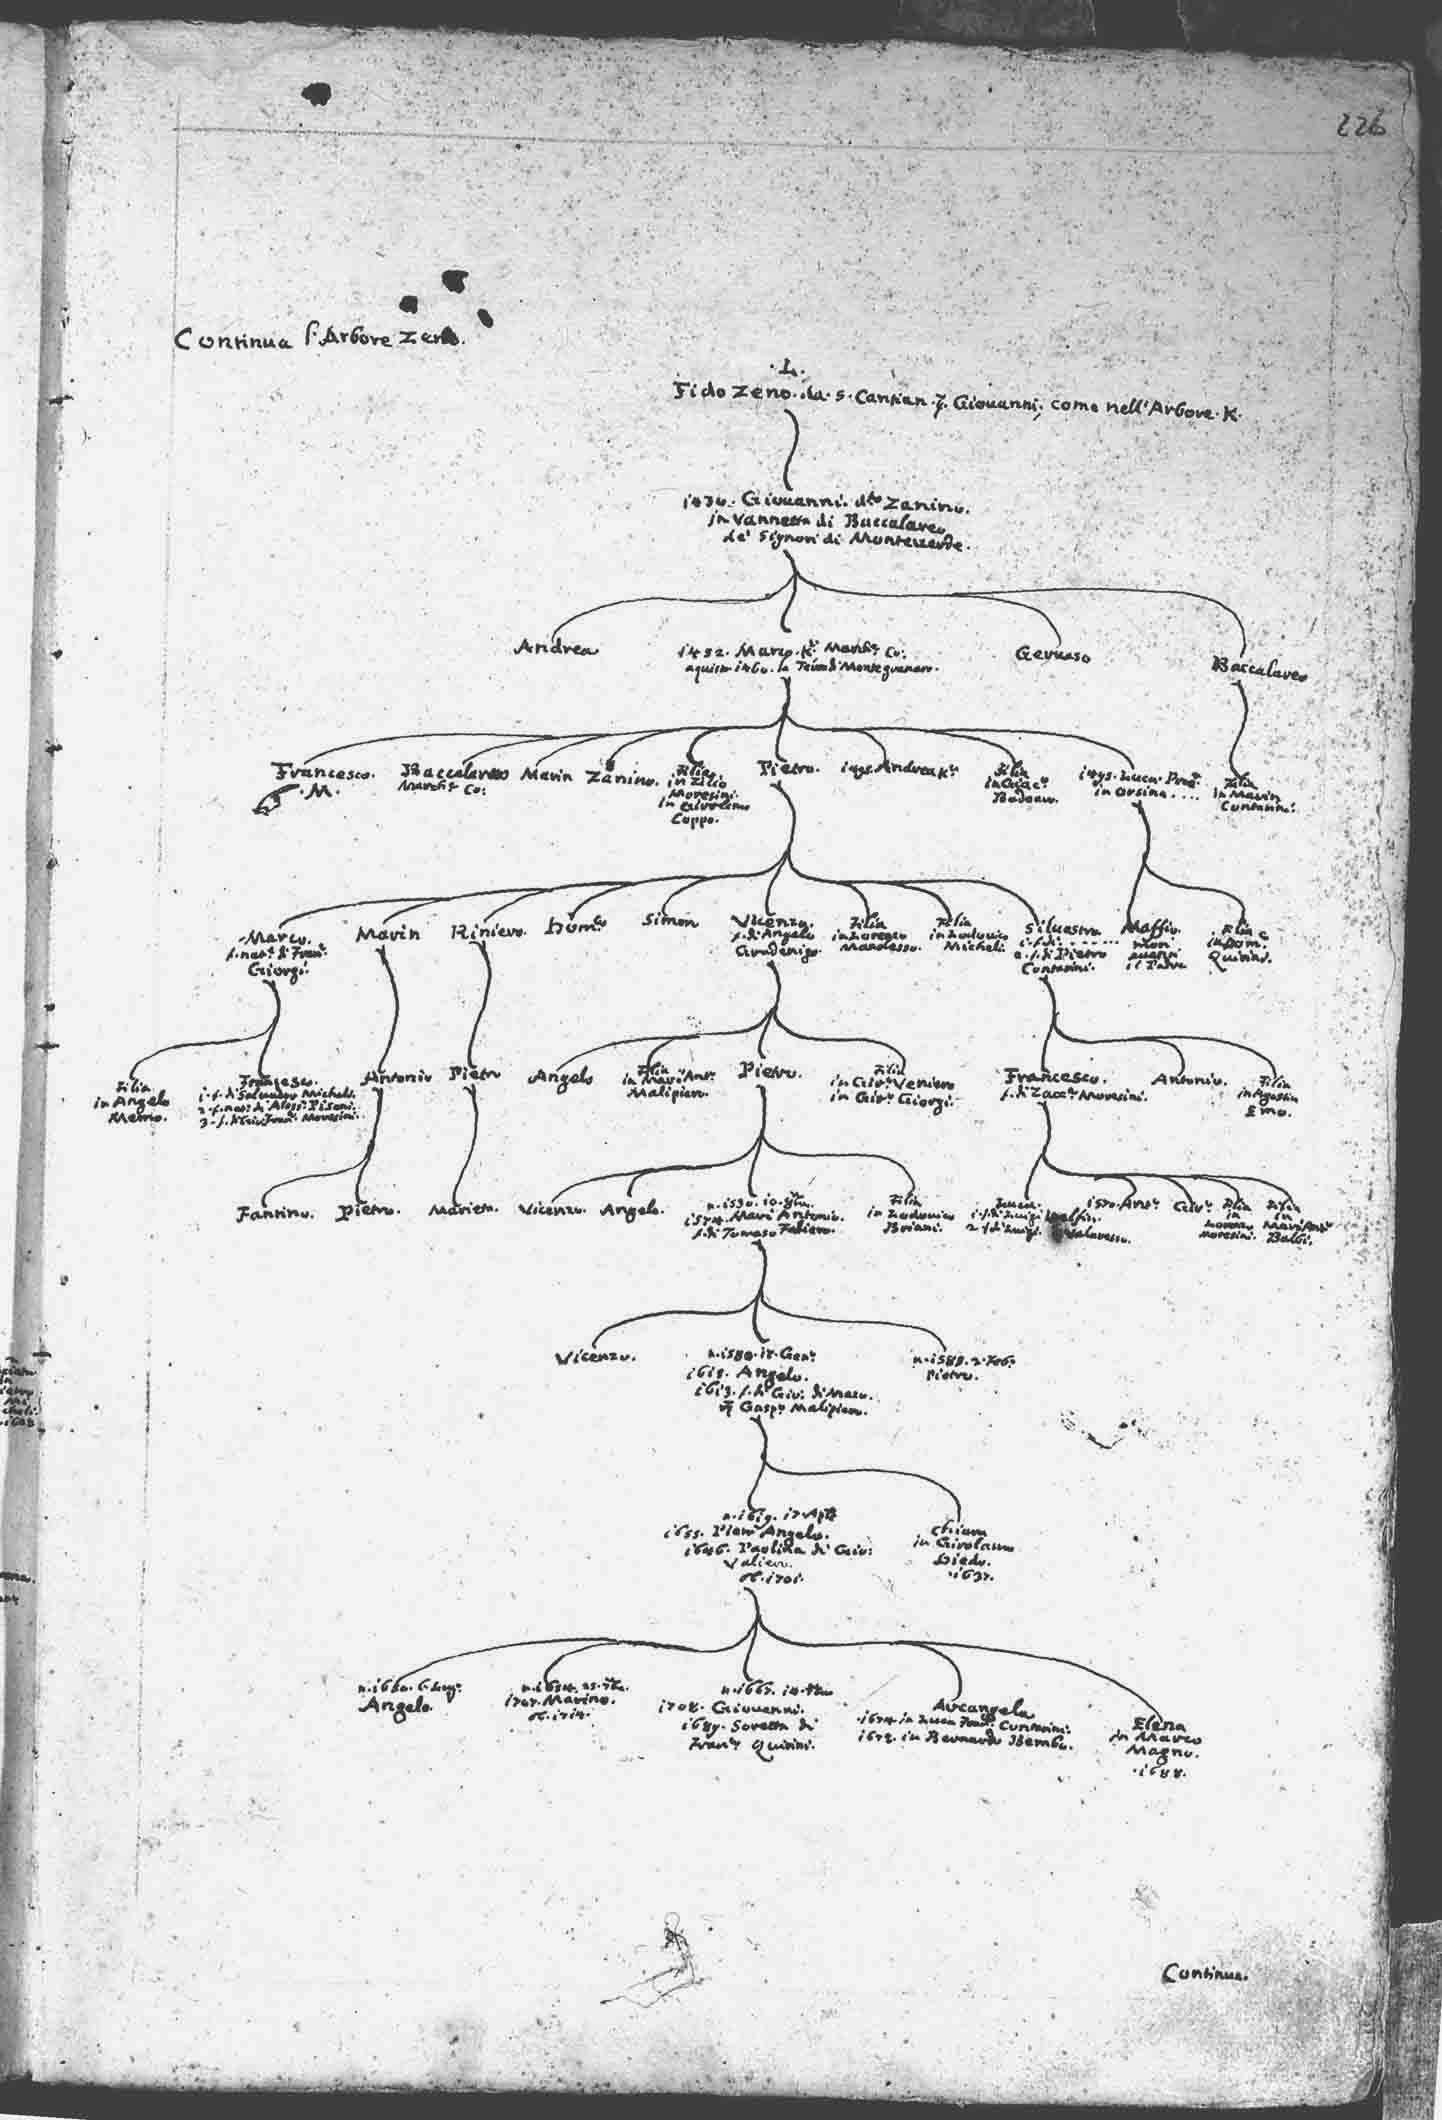 226
Continua l'Arbore Zeno.
.L.
Fido Zeno. da. S. Canzian. Giovanni, come nell'Arbore. K.
1430. Giouanni. dto Zanino.
in Vannetta di Baccalareo
de' Signori di Monteverde.
Andrea
1452. Marco. Kr. March. Co:
aquistò 1460. la di Montegranaro.
Geruaso
Baccalareo
Francesco.
.M.
Baccalareo
March. Co:
Marin
Zanino.
Filia
in Zilio
Moresini.
in Girolamo
Coppo.
Pietro.
Andrea Kr.
Filia
in Giac.
Badoaro.
1495. Luca. Proc.
in Orsina ....
Filia
in Marin
Contarini.
Marco.
f. nat. di Fran.
Giorgi.
Marin
Riniero.
Dom.
Simon
Vicenzo.
f. di Angelo
Gradenigo
Filia
in Lorenzo
Marcello.
Filia
in Lodovico
Micheli.
Siluestro
1. f. di .......
2. f. di Pietro
Contarini.
Maffio.
morì
auanti
il Padre
Filia
in Dom.
Quirini.
Filia
in Angelo
Memo.
Francesco.
1. f. di Saluador Micheli.
2. f. nat. di Aloise Pisani.
3. f. di Gio: Fran. Moresini.
Antonio
Pietro
Angelo
Filia
in Marc' Ant.
Malipiero.
Pietro.
Filia
in Gio. Veniero
in Gio. Giorgi.
Francesco.
f. di Zacc. Moresini.
Antonio.
Filia
in Agostin
Emo.
Fantino.
Pietro.
Marieta.
Vicenzo.
Angelo.
n. 1530. 10.
1574. Marc' Antonio.
f. di Tomaso Faliero.
Filia
in Lodovico
Briani.
Luca.
1. f. di Luigi Dolfin.
2. f. di Luigi. Valaresso.
1570. Ant.
Gio.
Filia
in
Lorenzo
Moresini.
Filia
in
Marc' Ant.
Balbi.
Vicenzo.
n. 1580. Gen.
Angelo.
1613. f. di Gio: di Marco.
Gasp. Malipiero.
n. 1588. 2.
Pietro.
n. 1619. 17. Apr.
1655. Pier' Angelo.
1646. Paolina di Gio:
Valier.
ob. 1701.
Chiara
in Girolamo
Diedo.
.1637.
n. 1650. 6.
Angelo.
n. 1654. 25.
1707. Marino.
ob. 1714.
n. 1665. 14.
1708. Giouanni.
1689. Loretta di
Fran. Quirini.
Arcangela
.1674. in Luca Fran. Contarini.
in Bernardo Bembo.
Elena
in Marco
Magno.
.1688.
Continua.